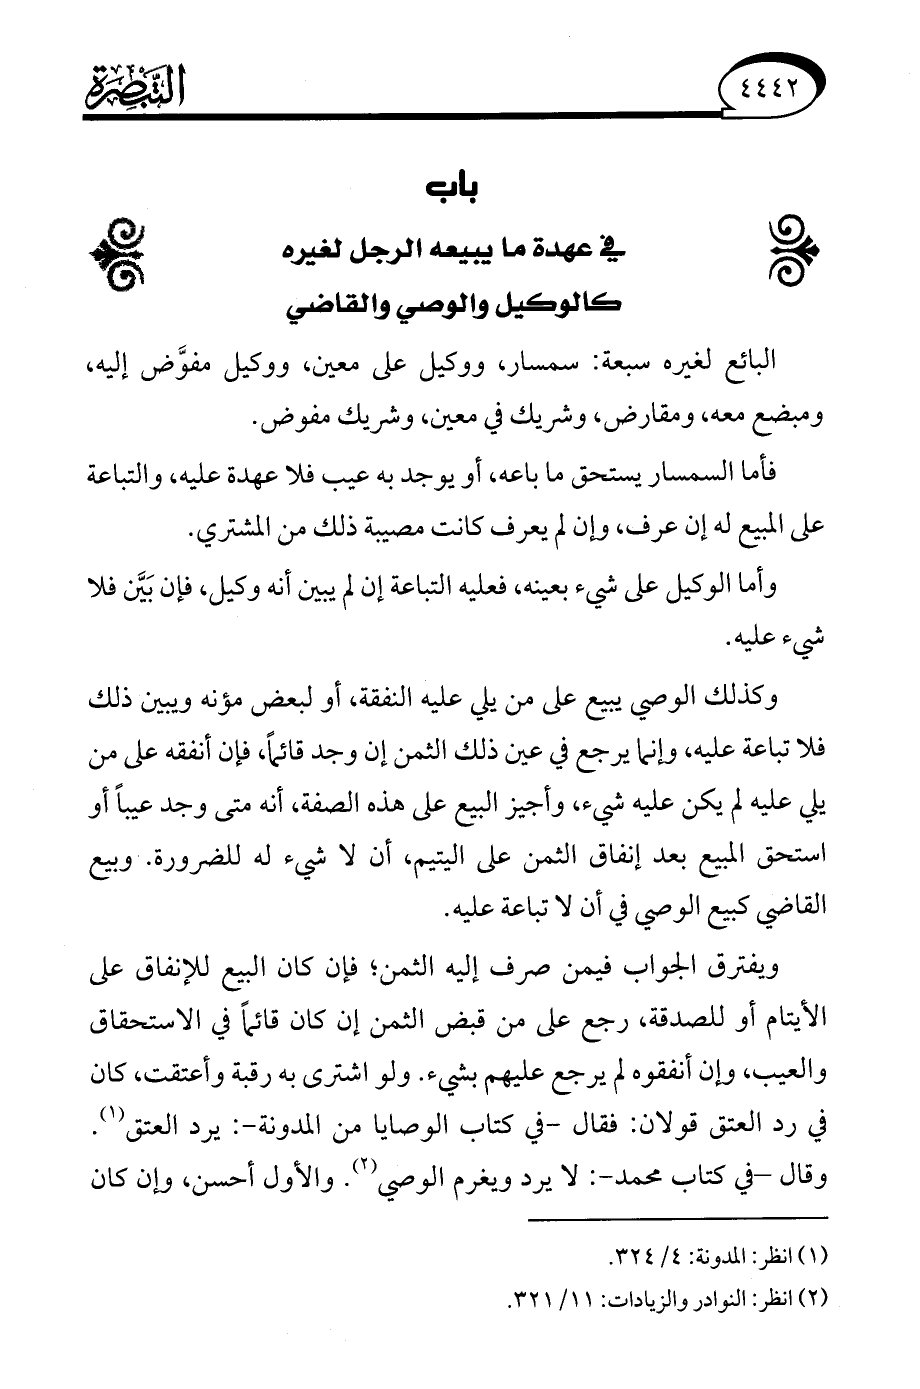 ٤٤٤٢
التبصرة
باب
في عهدة ما يبيعه الرجل لغيره
كالوكيل والوصي والقاضي
البائع لغيره سبعة: سمسار، ووكيل على معين، ووكيل مفوَّض إليه،
ومبضع معه، ومقارض، وشريك في معين، وشريك مفوض.
فأما السمسار يستحق ما باعه، أو يوجد به عيب فلا عهدة عليه، والتباعة
على المبيع له إن عرف، وإن لم يعرف كانت مصيبة ذلك من المشتري.
وأما الوكيل على شيء بعينه، فعليه التباعة إن لم يبين أنه وكيل، فإن بَيَّن فلا
شيء عليه.
وكذلك الوصي يبيع على من يلي عليه النفقة، أو لبعض مؤنه ويبين ذلك
فلا تباعة عليه، وإنما يرجع في عين ذلك الثمن إن وجد قائماً، فإن أنفقه على من
يلي عليه لم يكن عليه شيء، وأجيز البيع على هذه الصفة، أنه متى وجد عيباً أو
استحق المبيع بعد إنفاق الثمن على اليتيم، أن لا شيء له للضرورة. وبيع
القاضي كبيع الوصي في أن لا تباعة عليه.
ويفترق الجواب فيمن صرف إليه الثمن؛ فإن كان البيع للإنفاق على
الأيتام أو للصدقة، رجع على من قبض الثمن إن كان قائماً في الاستحقاق
والعيب، وإن أنفقوه لم يرجع عليهم بشيء. ولو اشترى به رقبة وأعتقت، كان
في رد العتق قولان: فقال -في كتاب الوصايا من المدونة-: يرد العتق(١).
وقال -في كتاب محمد-: لا يرد ويغرم الوصي(٢). والأول أحسن، وإن كان
(١) انظر: المدونة: ٤/ ٣٢٤.
(٢) انظر: النوادر والزيادات: ١١/ ٣٢١.